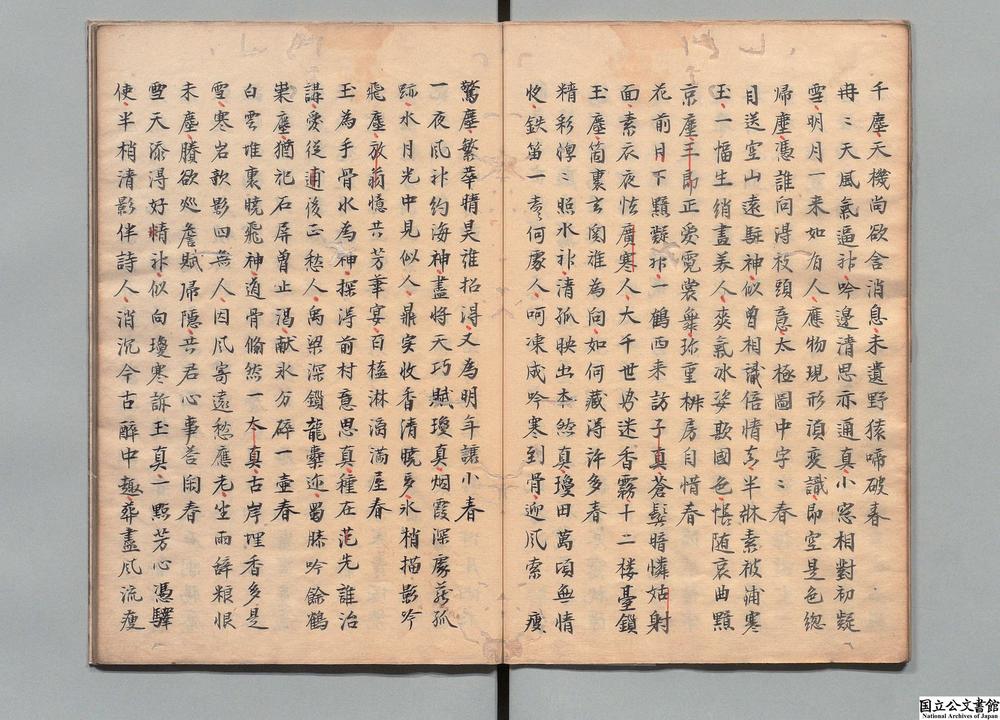 千塵天機尚欲含消息未遣野猿啼破春
冉々天風氣逼神吟邊清思亦通真小窓相對初疑
雪明月一来如有人應物現形須変識即空是色総
帰塵憑誰問得枝頭意太極圖中字々春
目送空山遠駐神似曽相識倍情真半牀素被浦寒
玉一幅生綃畫美人爽氣冰姿欺國色悵随哀曲黯
京塵王郎正爱霓裳舞珎重椒房自惜春
花前月下黯凝神一鶴西来訪子真蒼髯暗憐姑射
面素衣夜怯廣寒人大千世界迷香霧十二楼臺鎖
玉塵箇裏玄関誰為問如何藏得許多春
精彩渾々照水神清孤映出本然真瓊田萬頃無情
役鉄笛一聲何處人呵凍成吟寒到骨迎風索 瘦
驚塵繁華晴昊誰招得又為明年譲小春
一夜風神約海神盡將天巧賦瓊真烟霞深處藐孤
跡水月光中見似人鼎実收香清暁多氷梢描影吟
飛塵放翁憶共芳華宴百榼淋漓滿屋春
玉為手骨水為神探得前村意思真種在范先誰治
講爱従逋後正愁人禹梁深鎖龍嚢迩蜀膝吟餘鶴
巣塵猶祀石屏曽止渇献氷分碎一壷春
白雲堆裏暁飛神道骨翛然一本真古岸埋香多是
雪寒岩歌影四無人因風寄遠愁應老坐雨辭粮恨
未塵賸欲巡詹賦帰隠共君心事荅閙春
雪天添得好精神似向瓊寒訴玉真一點芳心憑驛
使半梢清影伴詩人消沉今古酔中趣弄盡風流瘦
国立公文書館
National Archives of Japan